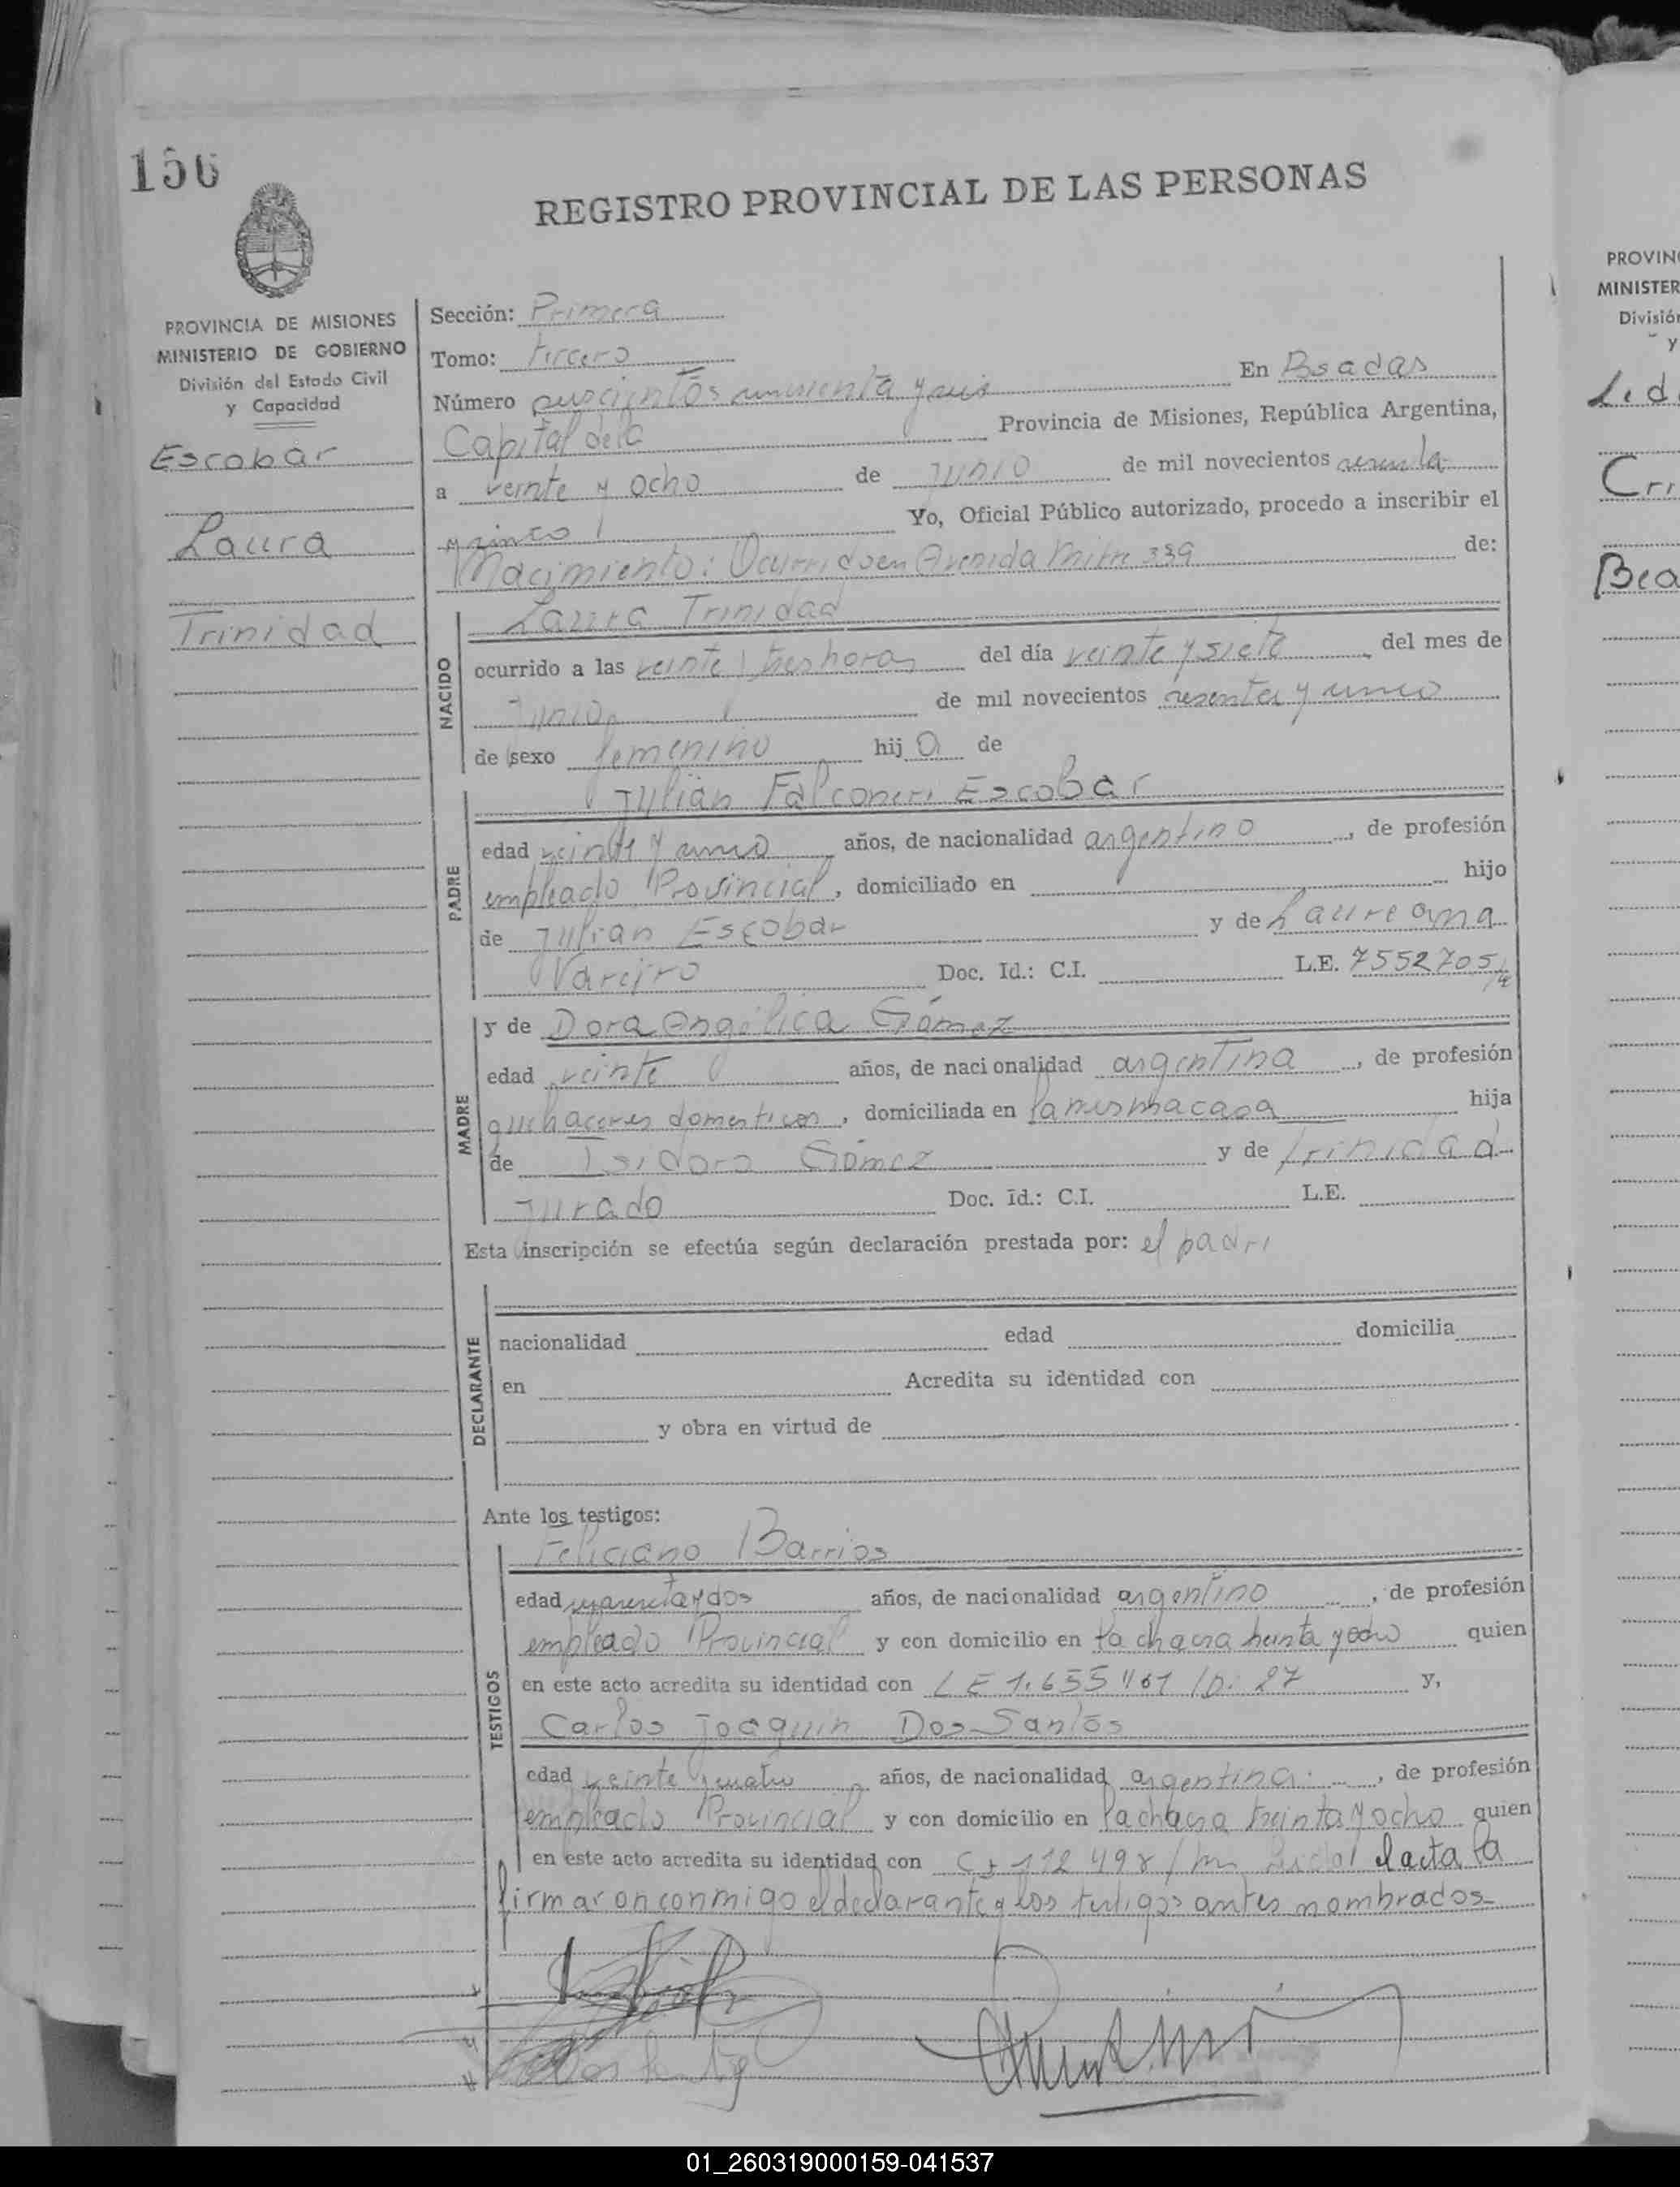 156
REGISTRO PROVINCIAL DE LAS PERSONAS
PROVINCIA DE MISIONES
MINISTERIO DE GOBIERNO
División del Estado Civil
y Capacidad
Escobar
Laura
Trinidad
Sección: Primera
Tomo: tercero
Número y seis En Posadas
Capital de la Provincia de Misiones, República Argentina,
a veinte y ocho de junio de mil novecientos sesenta
y cinco Yo, Oficial Público autorizado, procedo a inscribir el
Nacimiento: Ocurrido en Avenida Mitre 339 de:
NACIDO
Laura Trinidad
ocurrido a las veinte y tres horas del día veinte y siete del mes de
Junio de mil novecientos sesenta y cinco
de sexo femenino hija de
PADRE
Julián Falconeri Escobar
edad veinte y cinco años, de nacionalidad argentino, de profesión
empleado Provincial, domiciliado en hijo
de Julián Escobar y de Laureana
Vareiro Doc. Id.: C.I. L.E. 7552705
MADRE
y de Dora Angélica Gómez
edad veinte años, de nacionalidad argentina, de profesión
quehaceres domesticos, domiciliada en la misma casa hija
de Isidoro Gómez y de Trinidad
Jurado Doc. Id.: C.I. L.E.
Esta inscripción se efectúa según declaración prestada por: el padre
DECLARANTE
nacionalidad edad domicilia
en Acredita su identidad con
y obra en virtud de
Ante los testigos:
TESTIGOS
Feliciano Barrios
edad cuarenta y dos años, de nacionalidad argentino, de profesión
empleado Provincial y con domicilio en la chacra treinta y ocho quien
en este acto acredita su identidad con LE 1.655 y,
Carlos Joaquin Dos Santos
edad veinte y cuatro años, de nacionalidad argentina, de profesión
empleado Provincial y con domicilio en la chacra treinta y ocho quien
en este acto acredita su identidad con el acta la
firmaron conmigo el declarante y los testigos antes nombrados
PROVIN
MINISTER
División
y
Cri
Bea
01_260319000159-041537